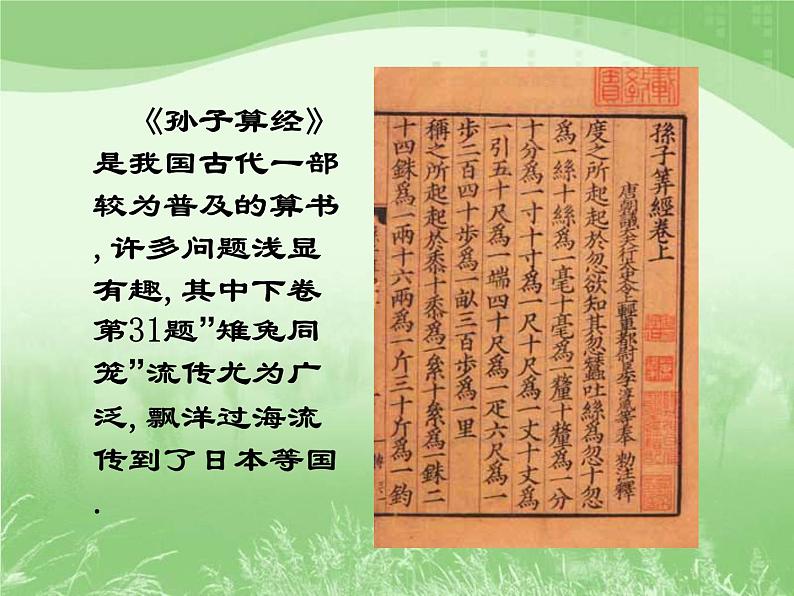 《孙子算经》
是我国古代一部
较为普及的算书
,许多问题浅显
有趣,其中下卷
第31题”雉兔同
笼”流传尤为广
泛,飘洋过海流
传到了日本等国
.
孫子筭經卷上
唐朝議大夫行太史令上輕車都尉臣李淳風等奉 勅注釋
度之所起起於忽欲知其忽蠶吐絲為忽十忽
為一絲十絲為一毫十毫為一釐十釐為一分
十分為一寸十寸為一尺十尺為一丈十丈為
一引五十尺為一端四十尺為一疋六尺為一
步二百四十步為一畝三百步為一里
稱之所起起於黍十黍為一絫十絫為一銖二
十四銖為一兩十六兩為一斤三十斤為一鈞